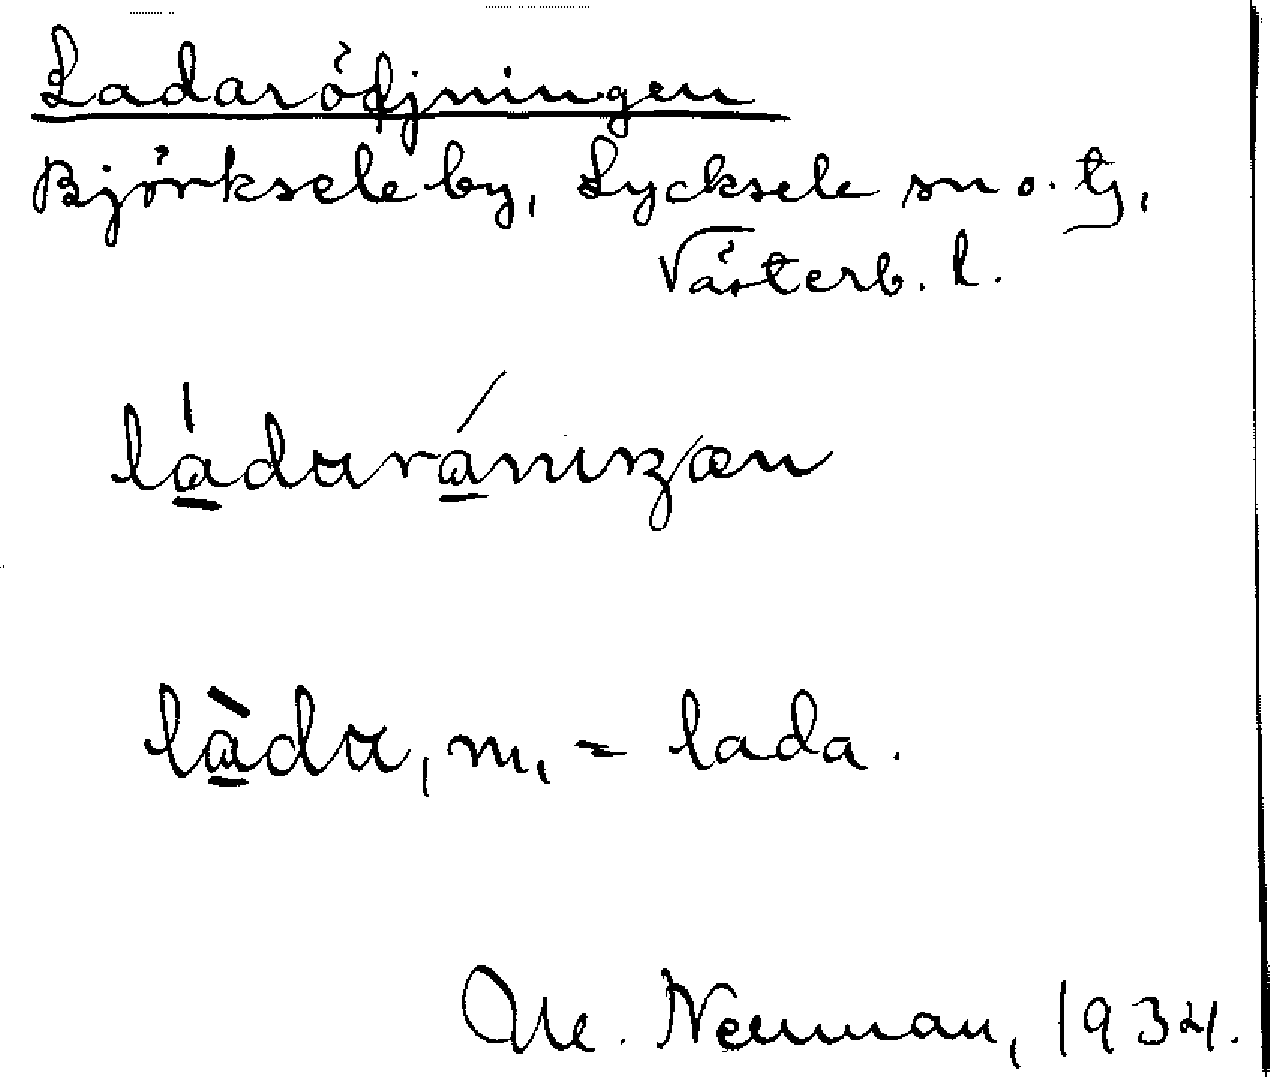 Ladarödjningen
Björksele by, Lycksele sn o. tg,
Västerb. l.
la̲̍darа̲́nıŋæn
là̲da, m, = lada.
M. Neuman, 1934.